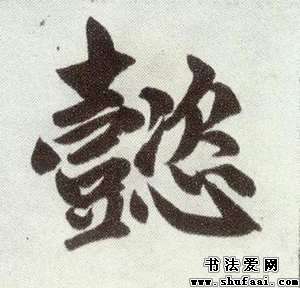 懿
书法爱网
www.shufaai.com